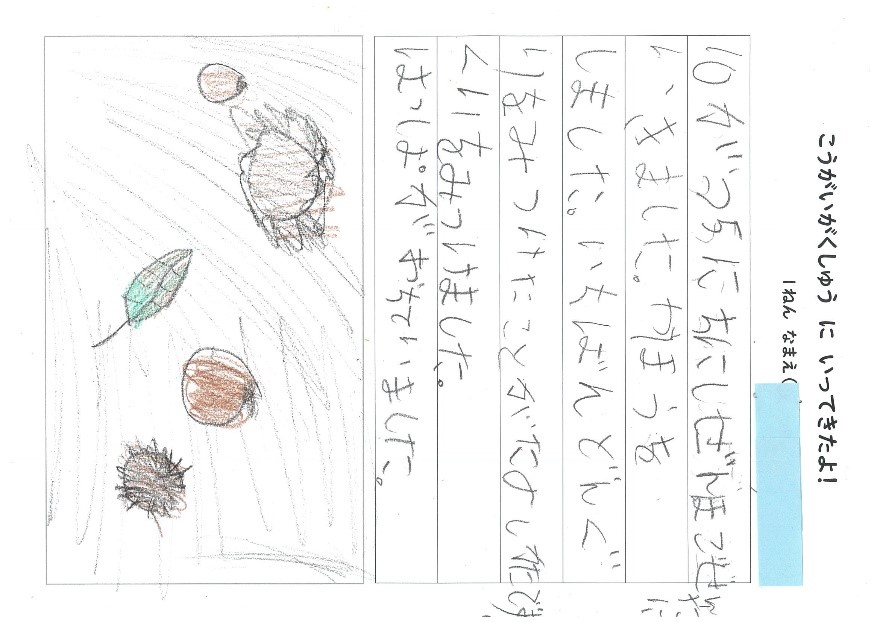 こうがいがくしゅう に いってきたよ!
1ねん なまえ(
10がつ5にちにしぜん
いきました。
しました。いちばんどんぐ
りをみつけたことがたのしかたです
くいをみつけました。
はっぱがおちていました。